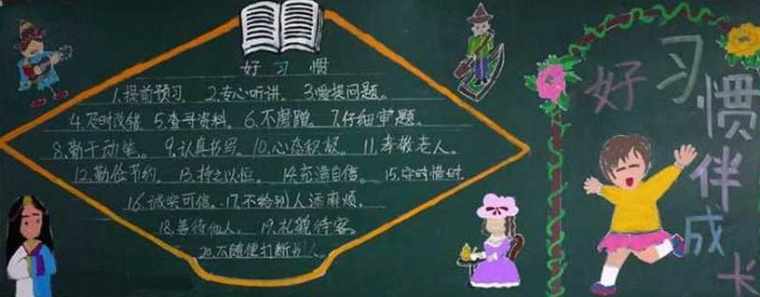 好习惯
1.提前预习。 2.专心听讲。 3.爱提问题。
4.及时改错. 5.查寻资料。 6.不磨蹭。 7.仔细审题。
8.勤于动笔。 9.认真书写。 10.心态积极。 11.孝敬老人。
12.勤俭节约。 13.持之以恒。 14.充满自信。 15.守时惜时
16.诚实可信。 17.不给别人添麻烦。
18.善待他人。 19.礼貌待客。
20.不随便打断别人。
好习惯伴成长